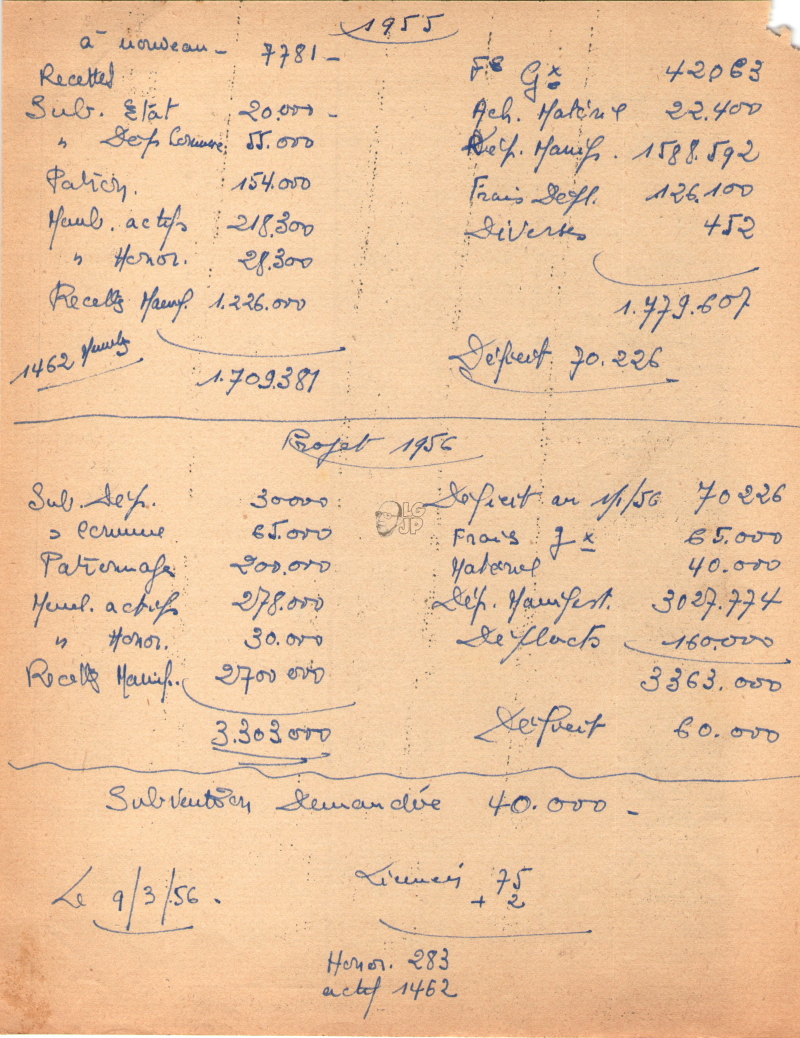 1955
à nouveau - 7781 -
Recettes
Sub. Etat 20.000 -
" Dép Commune 55.000
Patron. 154.000
Memb. actifs 218.300
" Honor. 28.300
Recettes Manif. 1.226.000
1.709.381
1462 Membres
Fs Gx 42063
Ach. Matériel 22.400
Dép. Manif. 1588.592
Frais Depl. 126.100
Diverses 452
1.779.607
Déficit 70.226
Projet 1956
Sub. Dép. 30000
" Commune 65.000
Patronnage 200.000
Memb. actifs 278.000
" Honor. 30.000
Recettes Manif. 2700 000
3.303000
Déficit au 1/1/56 70226
Frais gx 65.000
Matériel 40.000
Dép. Manifest. 3027.774
Déplacts 160.000
3363.000
Déficit 60.000
LG
JP
Subvention Demandée 40.000 -
Le 9/3/56.
Licenciés 75
+ 2
Honor. 283
actif 1462